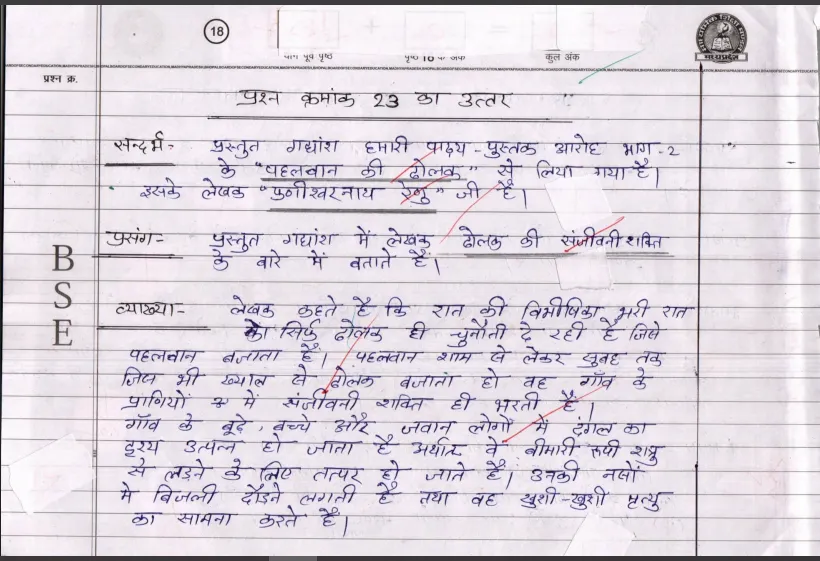 18
याग पूर्व पृष्ठ
पृष्ठ 18 के अंक
कुल अंक
मध्यप्रदेश
प्रश्न क्र.
प्रश्न क्रमांक 23 का उत्तर
सन्दर्भ- प्रस्तुत गद्यांश हमारी पाठ्य-पुस्तक आरोह भाग-2
के "पहलवान की ढोलक" से लिया गया है।
इसके लेखक "फणीश्वरनाथ रेणु" जी है।
प्रसंग- प्रस्तुत गद्यांश में लेखक ढोलक की संजीवनी शक्ति
के बारे में बताते हैं।
व्याख्या- लेखक कहते है कि रात की विभीषिका भरी रात
को सिर्फ ढोलक ही चुनौती दे रही है जिसे
पहलवान बजाता है। पहलवान शाम से लेकर सुबह तक
जिस भी ख्याल से ढोलक बजाता हो वह गाँव के
प्राणियों में संजीवनी शक्ति ही भरती है।
गाँव के बूढ़े, बच्चे और जवान लोगों में दंगल का
दृश्य उत्पन्न हो जाता है अर्थात वे बीमारी रूपी शत्रु
से लड़ने के लिए तत्पर हो जाते है। उनकी नसों
मे बिजली दौड़ने लगती है तथा वह खुशी-खुशी मृत्यु
का सामना करते है।
BSE